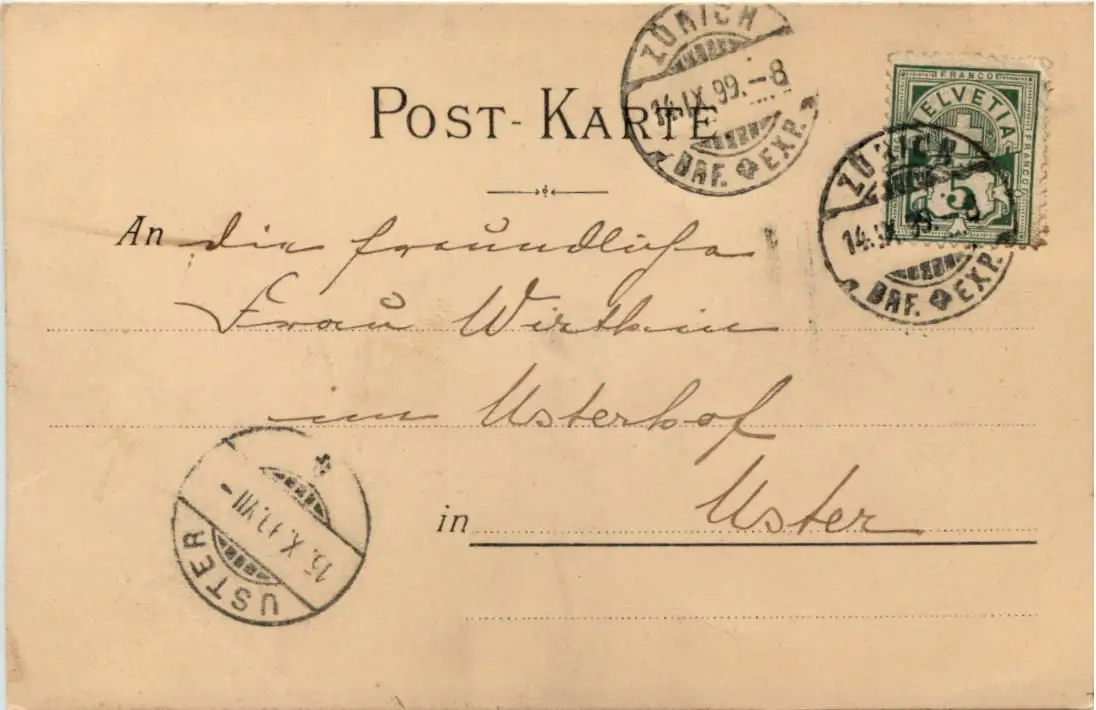 ZÜRICH
14.IX.99.-8
BRF. EXP.
POST-KARTE
FRANCO
HELVETIA
FRANCO
5
ZÜRICH
14.IX.99.
BRF. EXP.
An die freundliche
Frau Wirthin
im Usterhof
in Uster
USTER